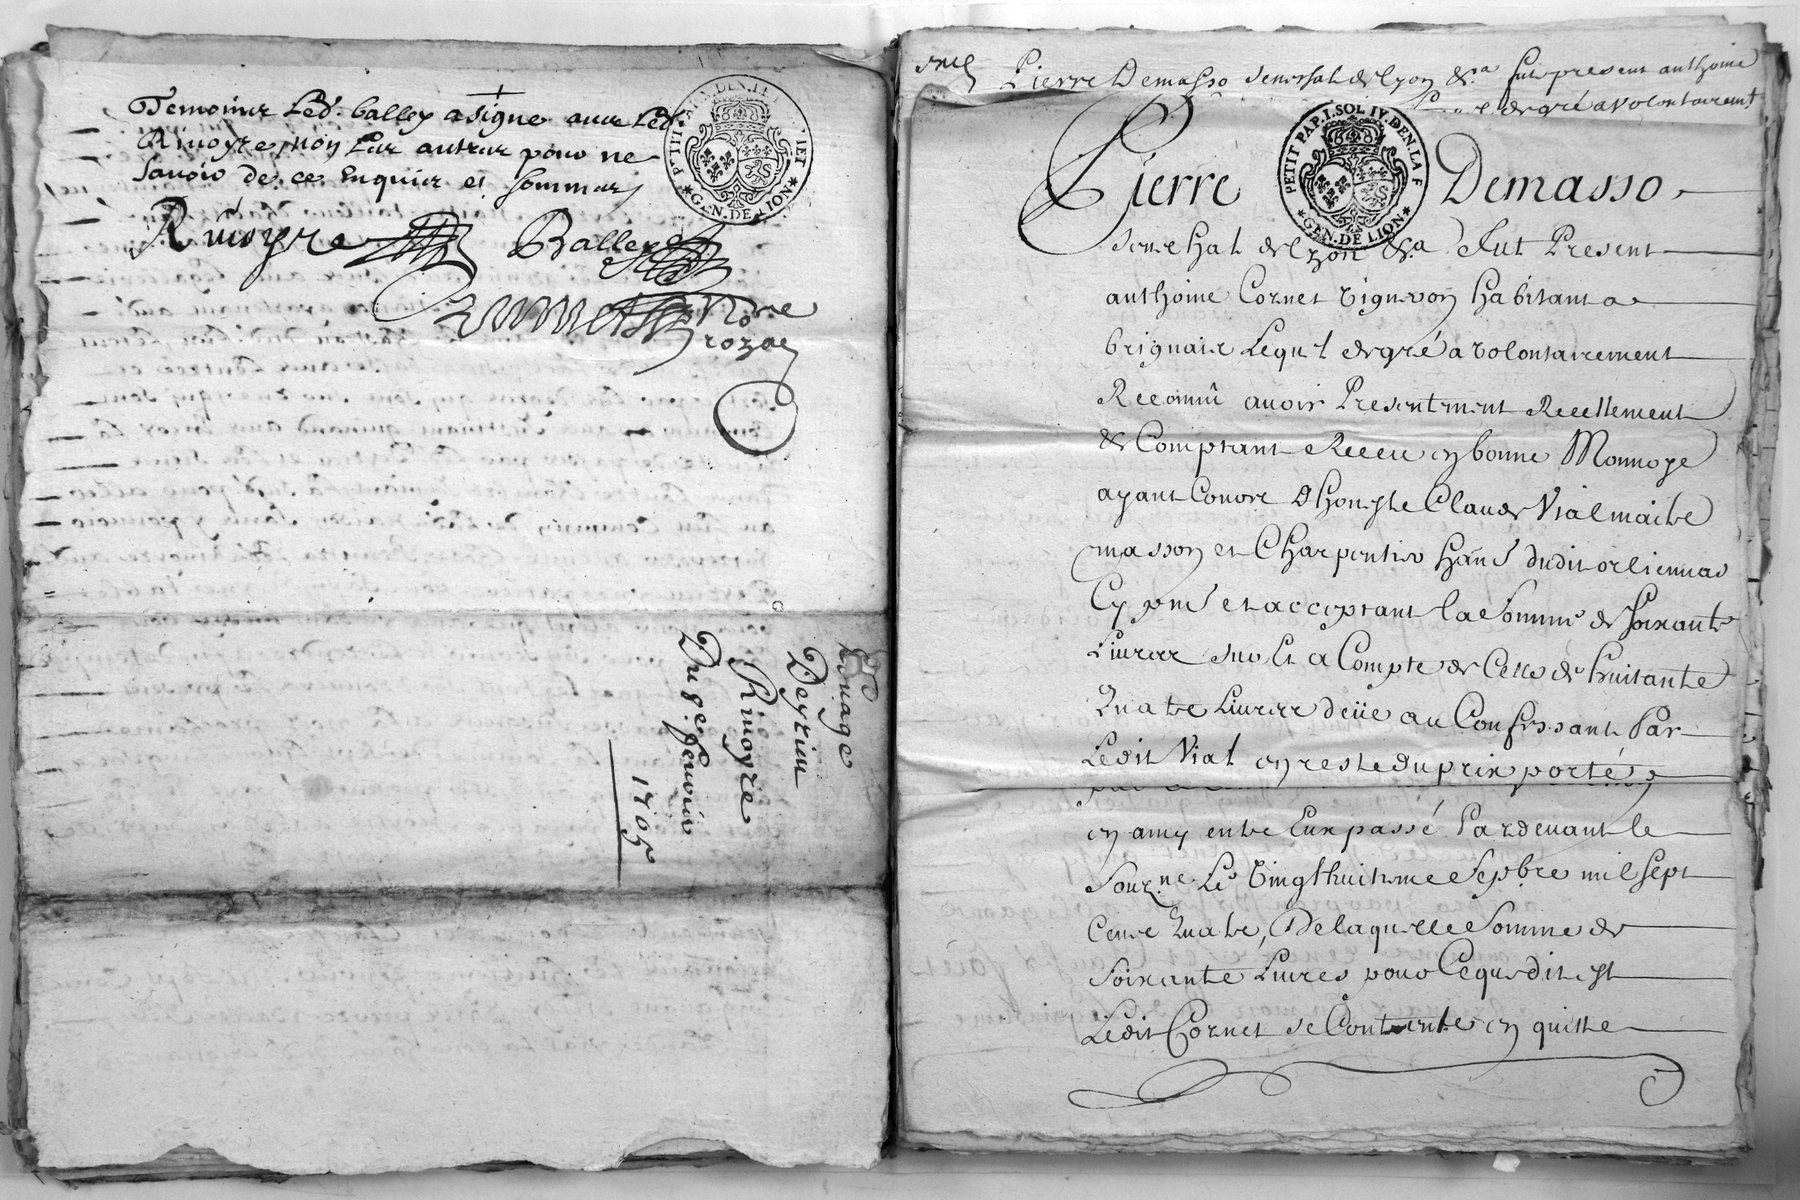 Temoins Led. balley a signe avec Led.
Rivoyre, non Les autres pour ne
savoir de ce Enquis et sommés
Rivoyre Balley
no.re
rozal
PETIT PAP. 1. SOL IV. DEN. LA F
GEN. DE LION
Louage
Rivoyre
Du 8.e Fevrier
1705
Pierre Demasso senechal de Lyon &.a fut present anthoine
de gré a volontairement
PETIT PAP. 1. SOL IV. DEN. LA F
GEN. DE LION
Pierre Demasso
senechal de Lyon &.a Fut Present
anthoine Cornet vigneron habitant a
brignais Lequel de gré a volontairement
Reconnû avoir Presentement Reellement
& Comptant Receu en bonne Monnoye
ayant Cours D'honeste Claude Vial maitre
masson et Charpentier han.t dudit orlienas
Cy pnt et acceptant la Somme de soixante
Livres sur Et a Compte de Celle de huitante
Quatre Livres deüe au Confessant Par
Ledit Vial en reste du prix porté
entre Eux passé Pardevant le
Sour.ne Le Vingthuitieme Sepbre mil sept
Cents Quatre, De laquelle Somme de
Soixante Livres pour Ce que dit est
Ledit Cornet se Contente en quitte